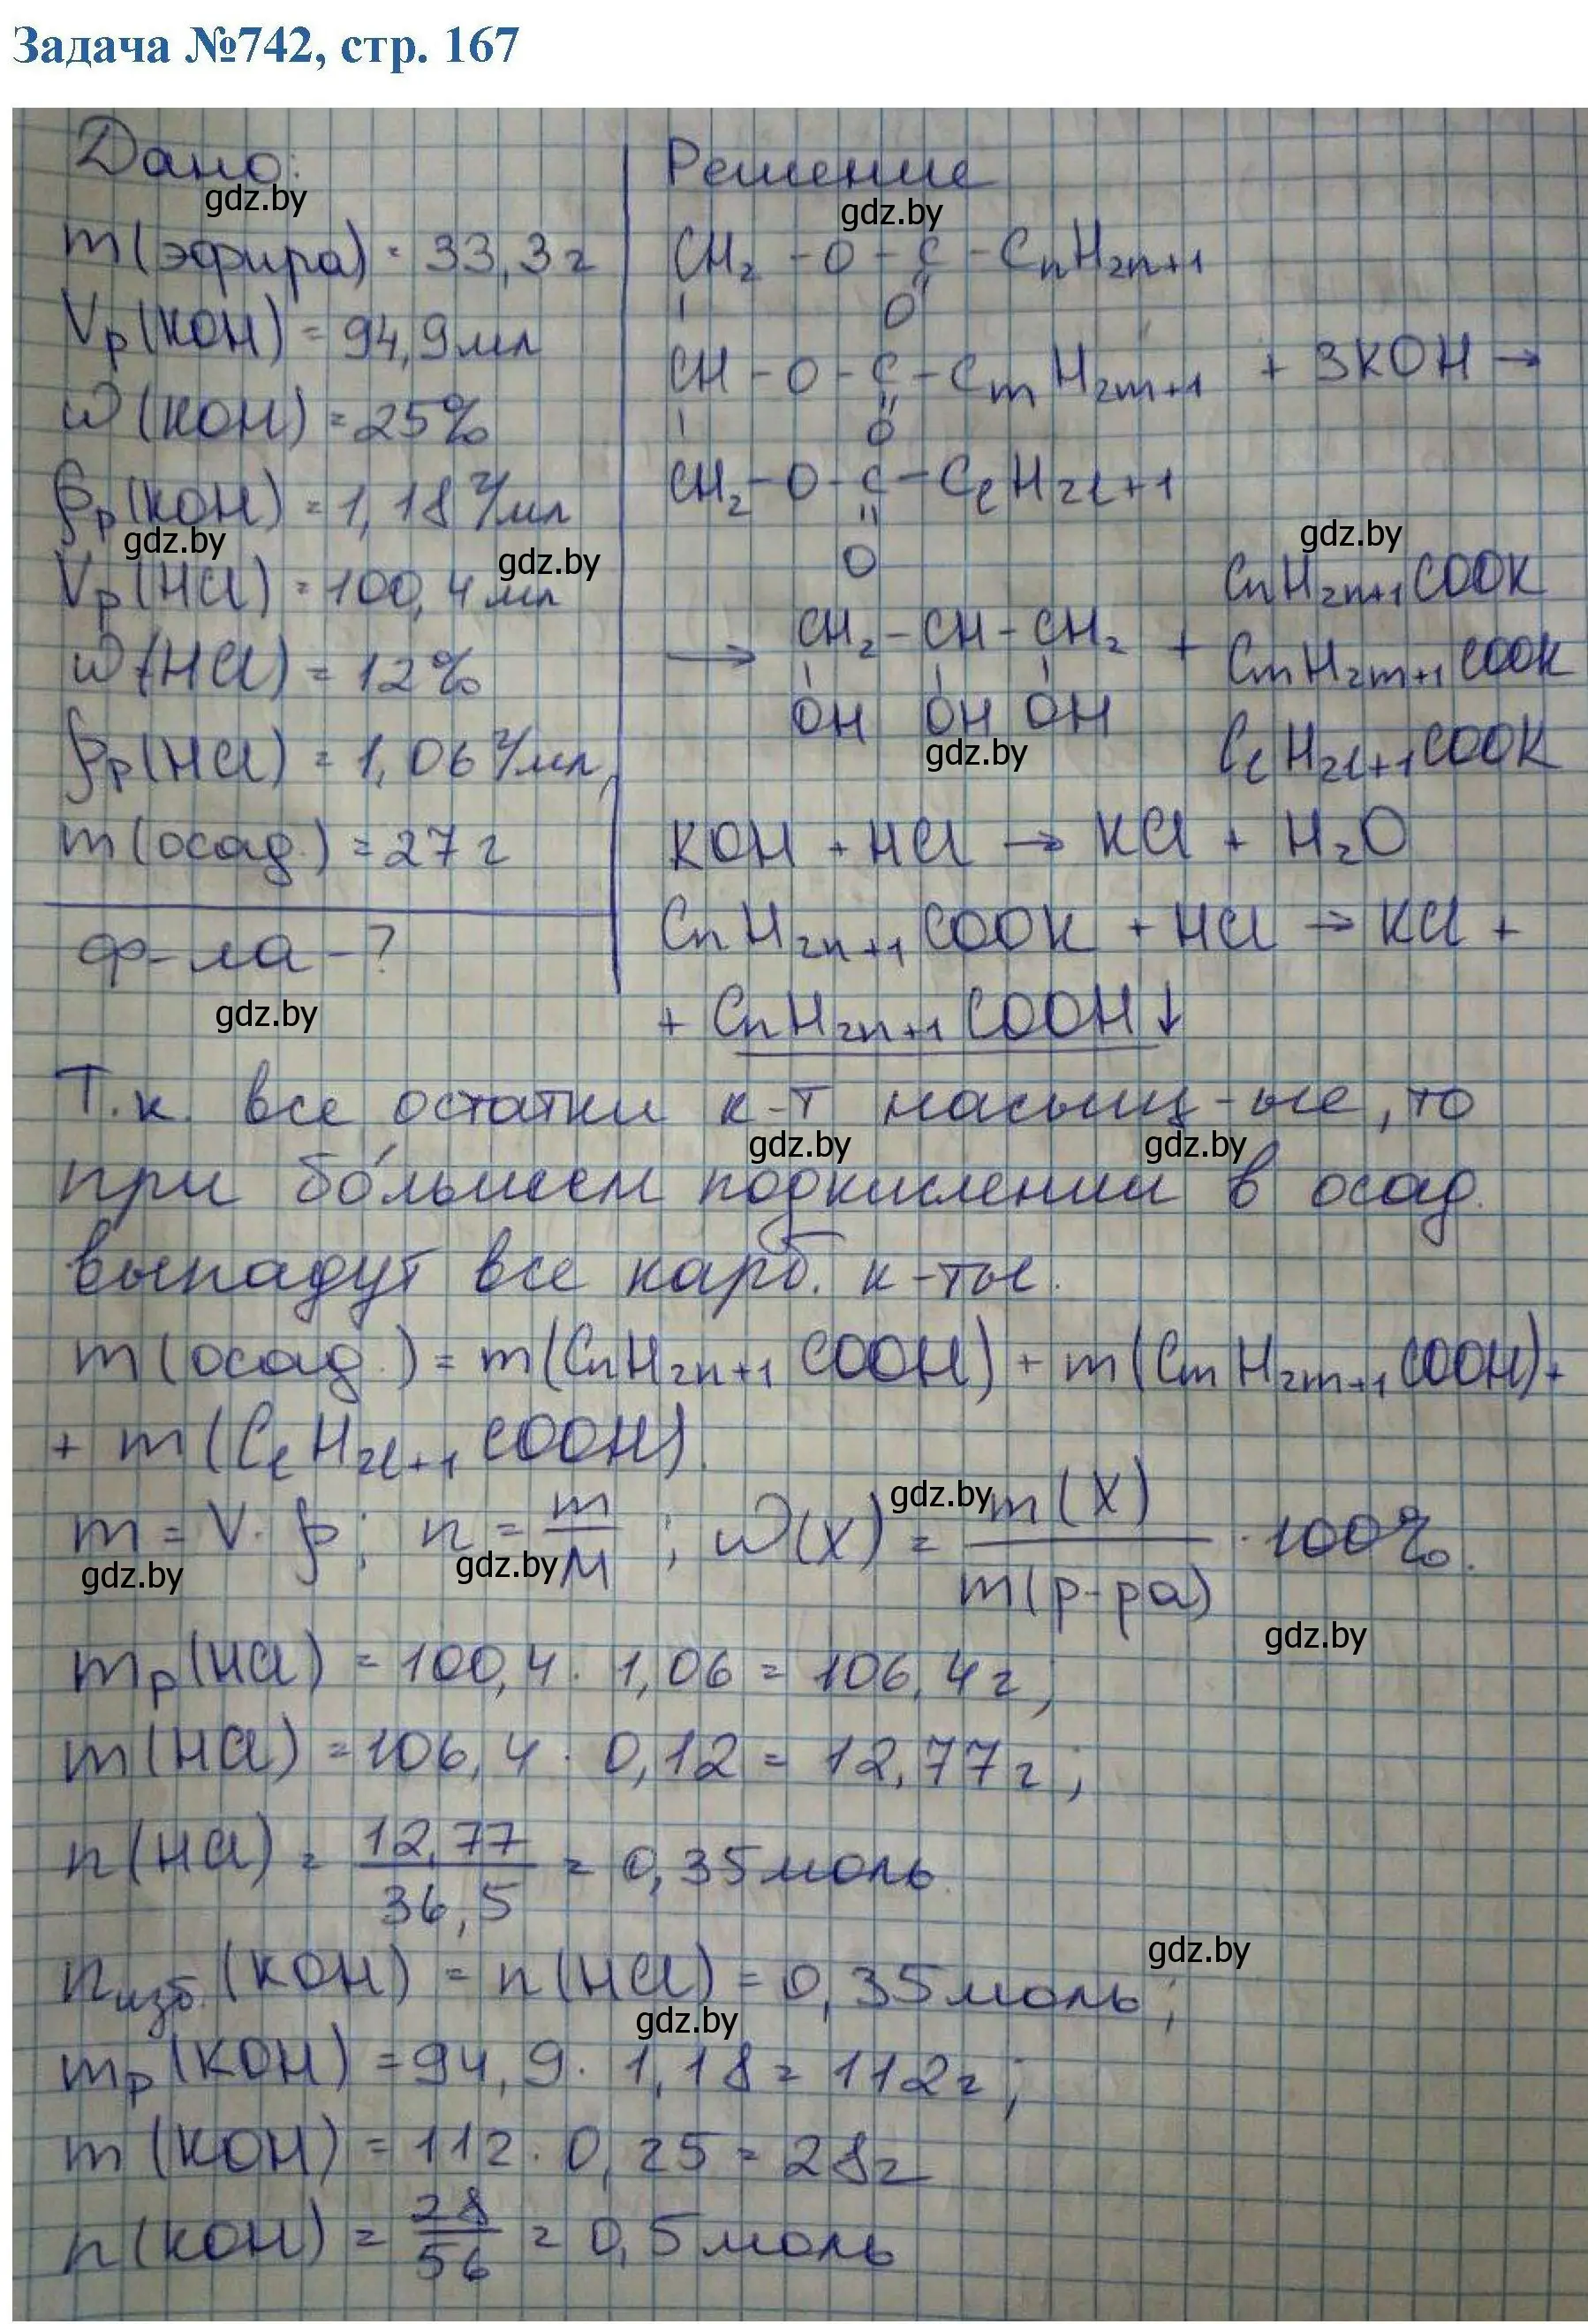 Задача №742, стр. 167
Дано:
gdz.by
m(эфира) = 33,3г
Vр(KOH) = 94,9мл
ω(KOH) = 25%
ρр(KOH) = 1,18 г/мл
gdz.by
gdz.by
Vр(HCl) = 100,4 мл
ω(HCl) = 12%
ρр(HCl) = 1,06 г/мл
m(осад.) = 27г
ф-ла - ?
gdz.by
Решение
gdz.by
CH₂ - O - C - CnH2n+1
O
CH - O - C - CmH2m+1 + 3KOH →
O
CH₂ - O - C - ClH2l+1
O
gdz.by
CnH2n+1COOK
→ CH₂ - CH - CH₂ + CmH2m+1COOK
OH OH OH
gdz.by
ClH2l+1COOK
KOH + HCl → KCl + H₂O
CnH2n+1COOK + HCl → KCl +
+ CnH2n+1COOH↓
Т.к. все остатки к-т насыщ-ые, то
gdz.by gdz.by
при бо́льшем подкислении в осад.
выпадут все карб. к-ты.
m(осад.) = m(CnH2n+1COOH) + m(CmH2m+1COOH) +
+ m(ClH2l+1COOH).
gdz.by
m = V · ρ; n = m/M; ω(X) = m(X)/m(р-ра) · 100%.
gdz.by gdz.by
gdz.by
mр(HCl) = 100,4 · 1,06 = 106,4г;
m(HCl) = 106,4 · 0,12 = 12,77г;
n(HCl) = 12,77/36,5 = 0,35моль.
gdz.by
nизб.(KOH) = n(HCl) = 0,35моль;
gdz.by
mр(KOH) = 94,9 · 1,18 = 112г;
m(KOH) = 112 · 0,25 = 28г
n(KOH) = 28/56 = 0,5моль